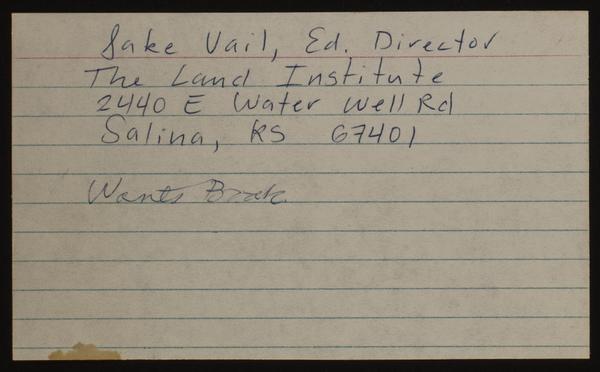 Jake Vail, Ed. Director
The Land Institute
2440 E Water Well Rd
Salina, KS 67401
Wants Book